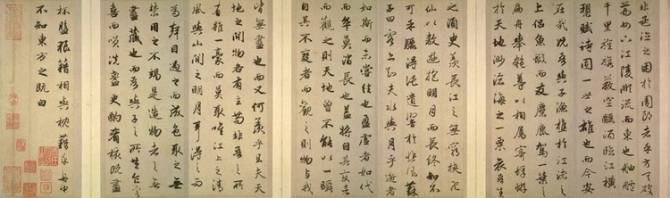 非孟德之困於周郎者乎方其破
荊州下江陵順流而東也舳艫
千里旌旗蔽空釃酒臨江橫
槊賦詩固一世之雄也而今安
在哉況吾與子漁樵於江渚之
上侶魚蝦而友麋鹿駕一葉之
扁舟舉匏尊以相屬寄蜉蝣
於天地渺滄海之一粟哀吾生
之須臾羨長江之無窮挾飛
仙以遨遊抱明月而長終知不
可乎驟得託遺響於悲風蘇
子曰客亦知夫水與月乎逝者
如斯而未嘗往也盈虛者如代
而卒莫消長也蓋將自其變者
而觀之則天地曾不能以一瞬
自其不變者而觀之則物與我
皆無盡也而又何羨乎且夫天
地之間物各有主苟非吾之所
有雖一毫而莫取惟江上之清
風與山間之明月耳得之而
為聲目遇之而成色取之無
禁用之不竭是造物者之無
盡藏也而吾與子之所共食客
喜而笑洗盞更酌肴核既盡
杯盤狼籍相與枕藉乎舟中
不知東方之既白